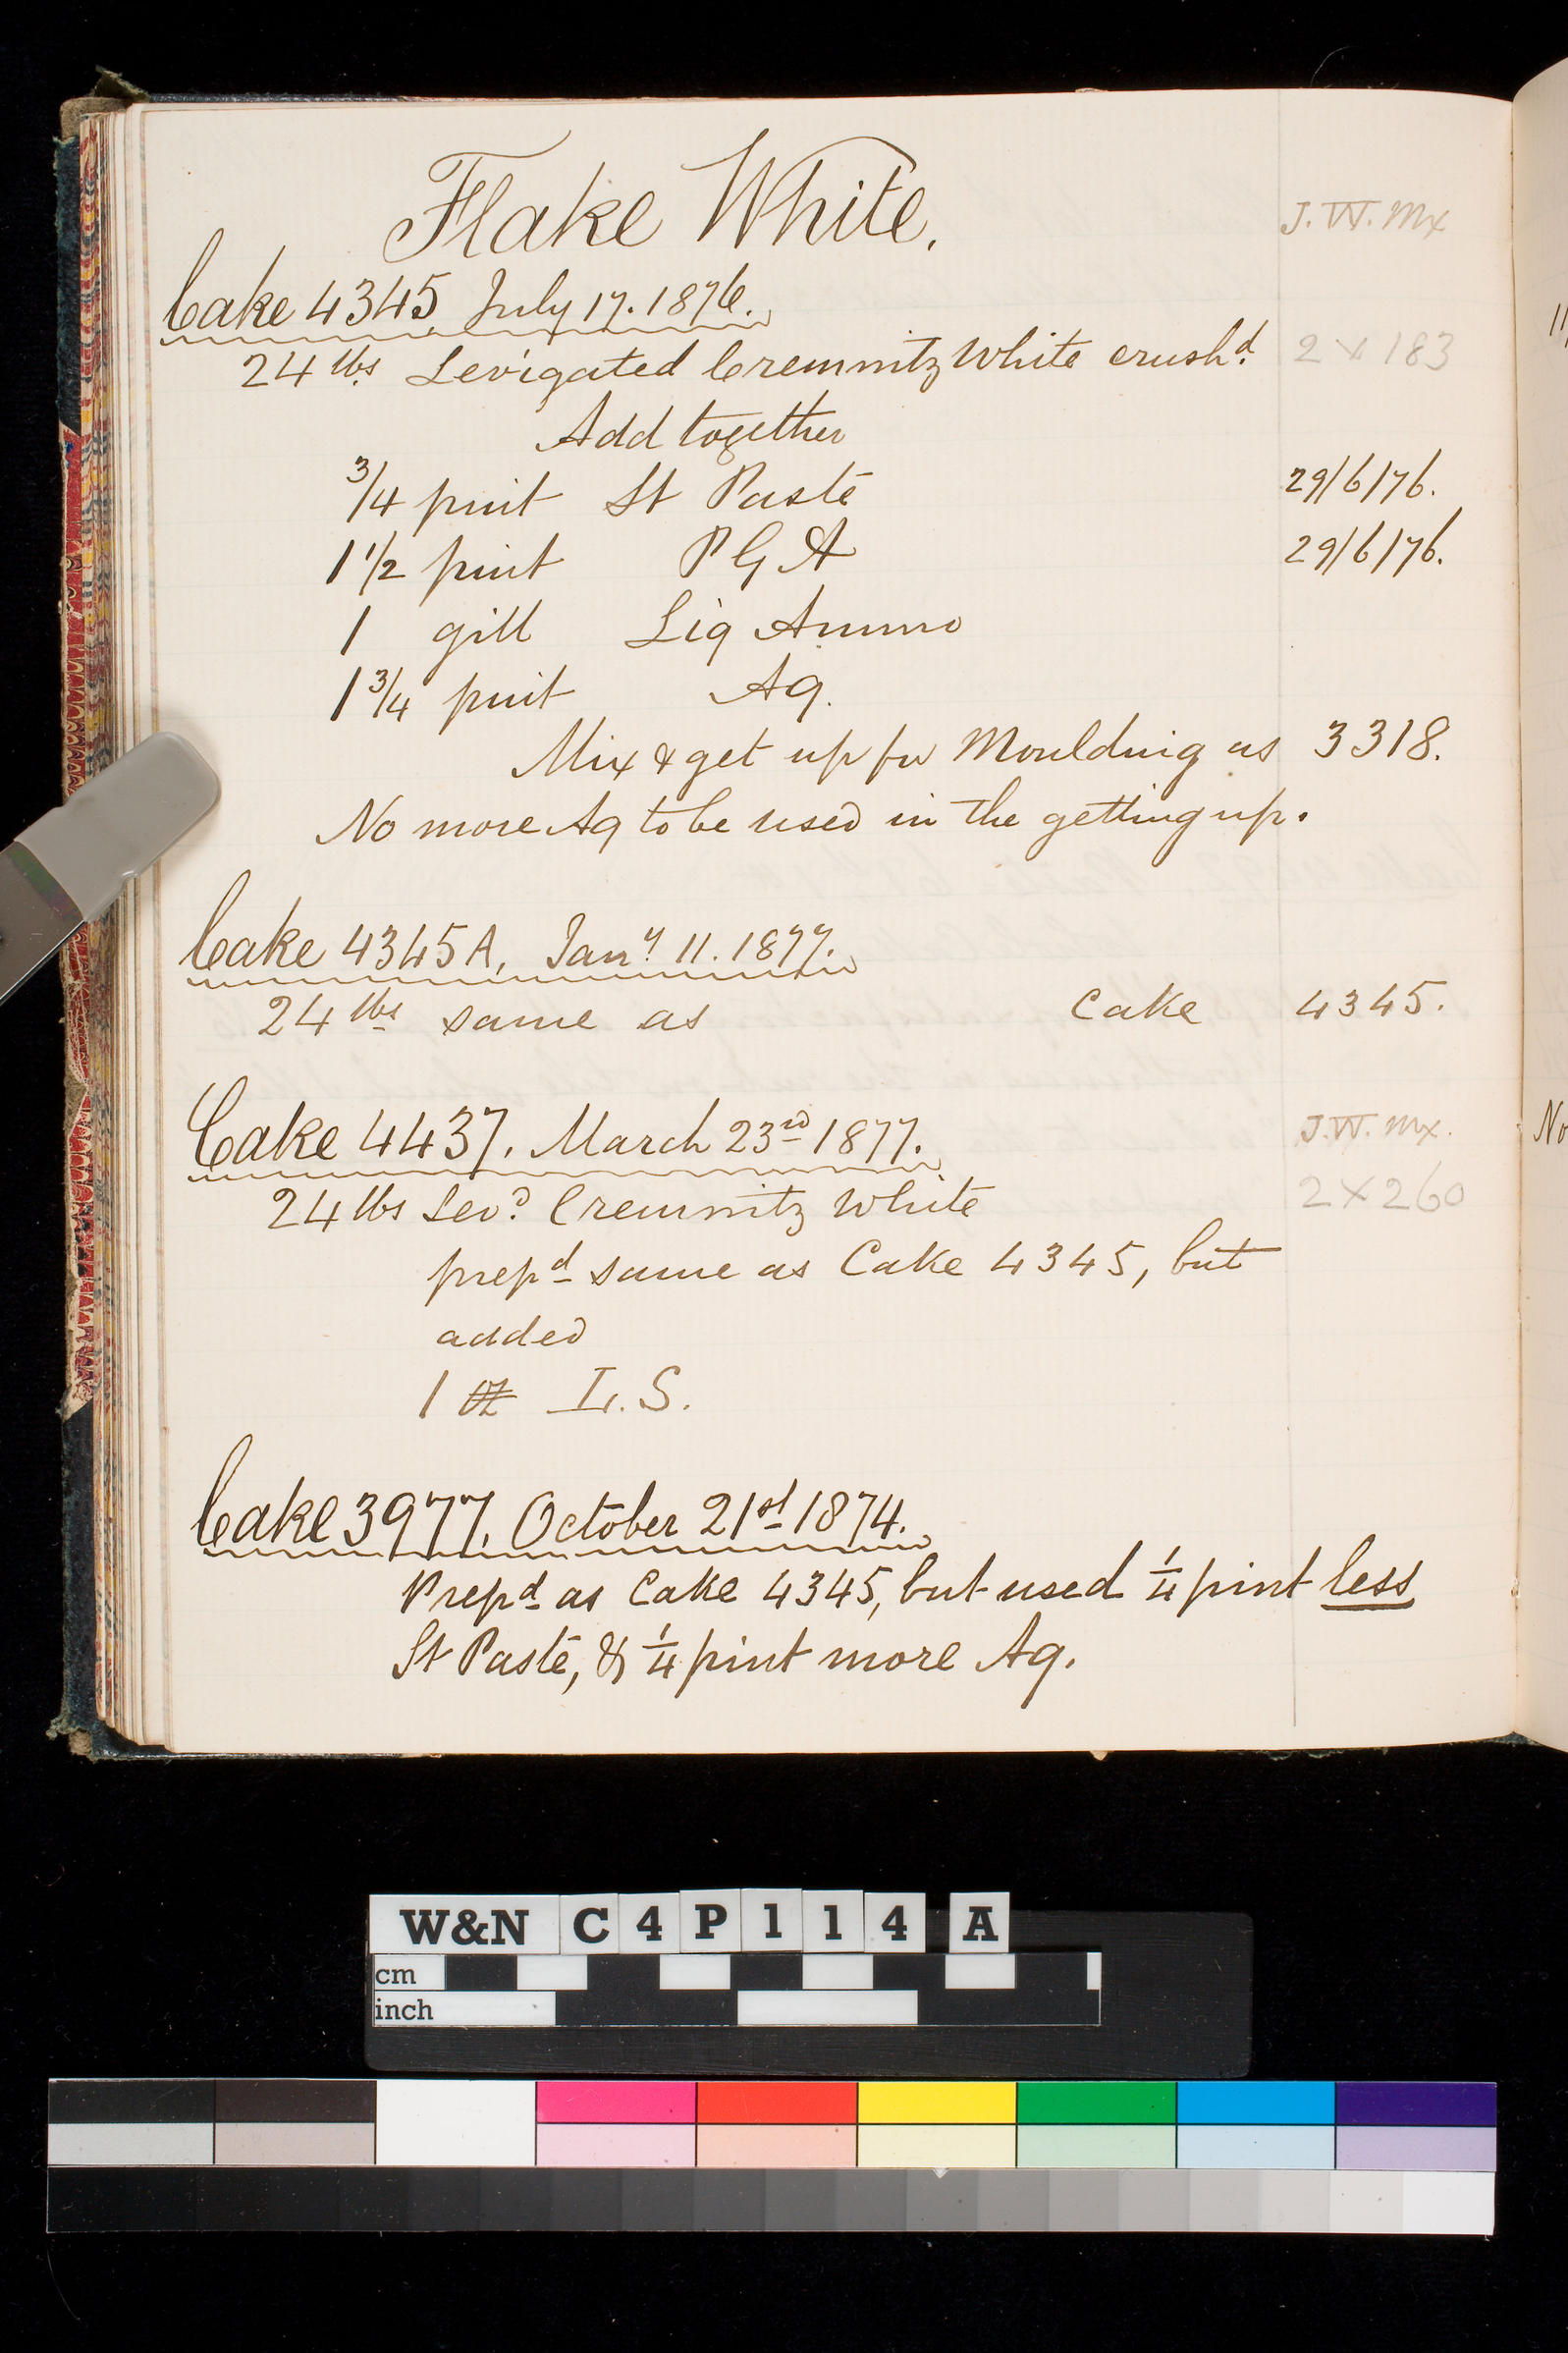 Flake White.
J. W. Mx
Cake 4345 July 17. 1876.
24 lbs Levigated Cremnitz White crushd. 2 x 183
Add together
3/4 pint St Paste 29/6/76.
1 1/2 pint P G A 29/6/76.
1 gill Liq Ammo
1 3/4 pint Aq.
Mix & get up for Moulding as 3318.
No more Aq to be used in the getting up.
Cake 4345A, Jany 11. 1877.
24 lbs same as Cake 4345.
Cake 4437. March 23rd 1877. J.W. Mx.
24 lbs Levd Cremnitz White 2 x 260
prepd same as Cake 4345, but
added
1 oz L. S.
Cake 3977. October 21st 1874.
Prepd as Cake 4345, but used 1/4 pint less
St Paste, & 1/4 pint more Aq.
11
No
W&N C4P114 A
cm
inch